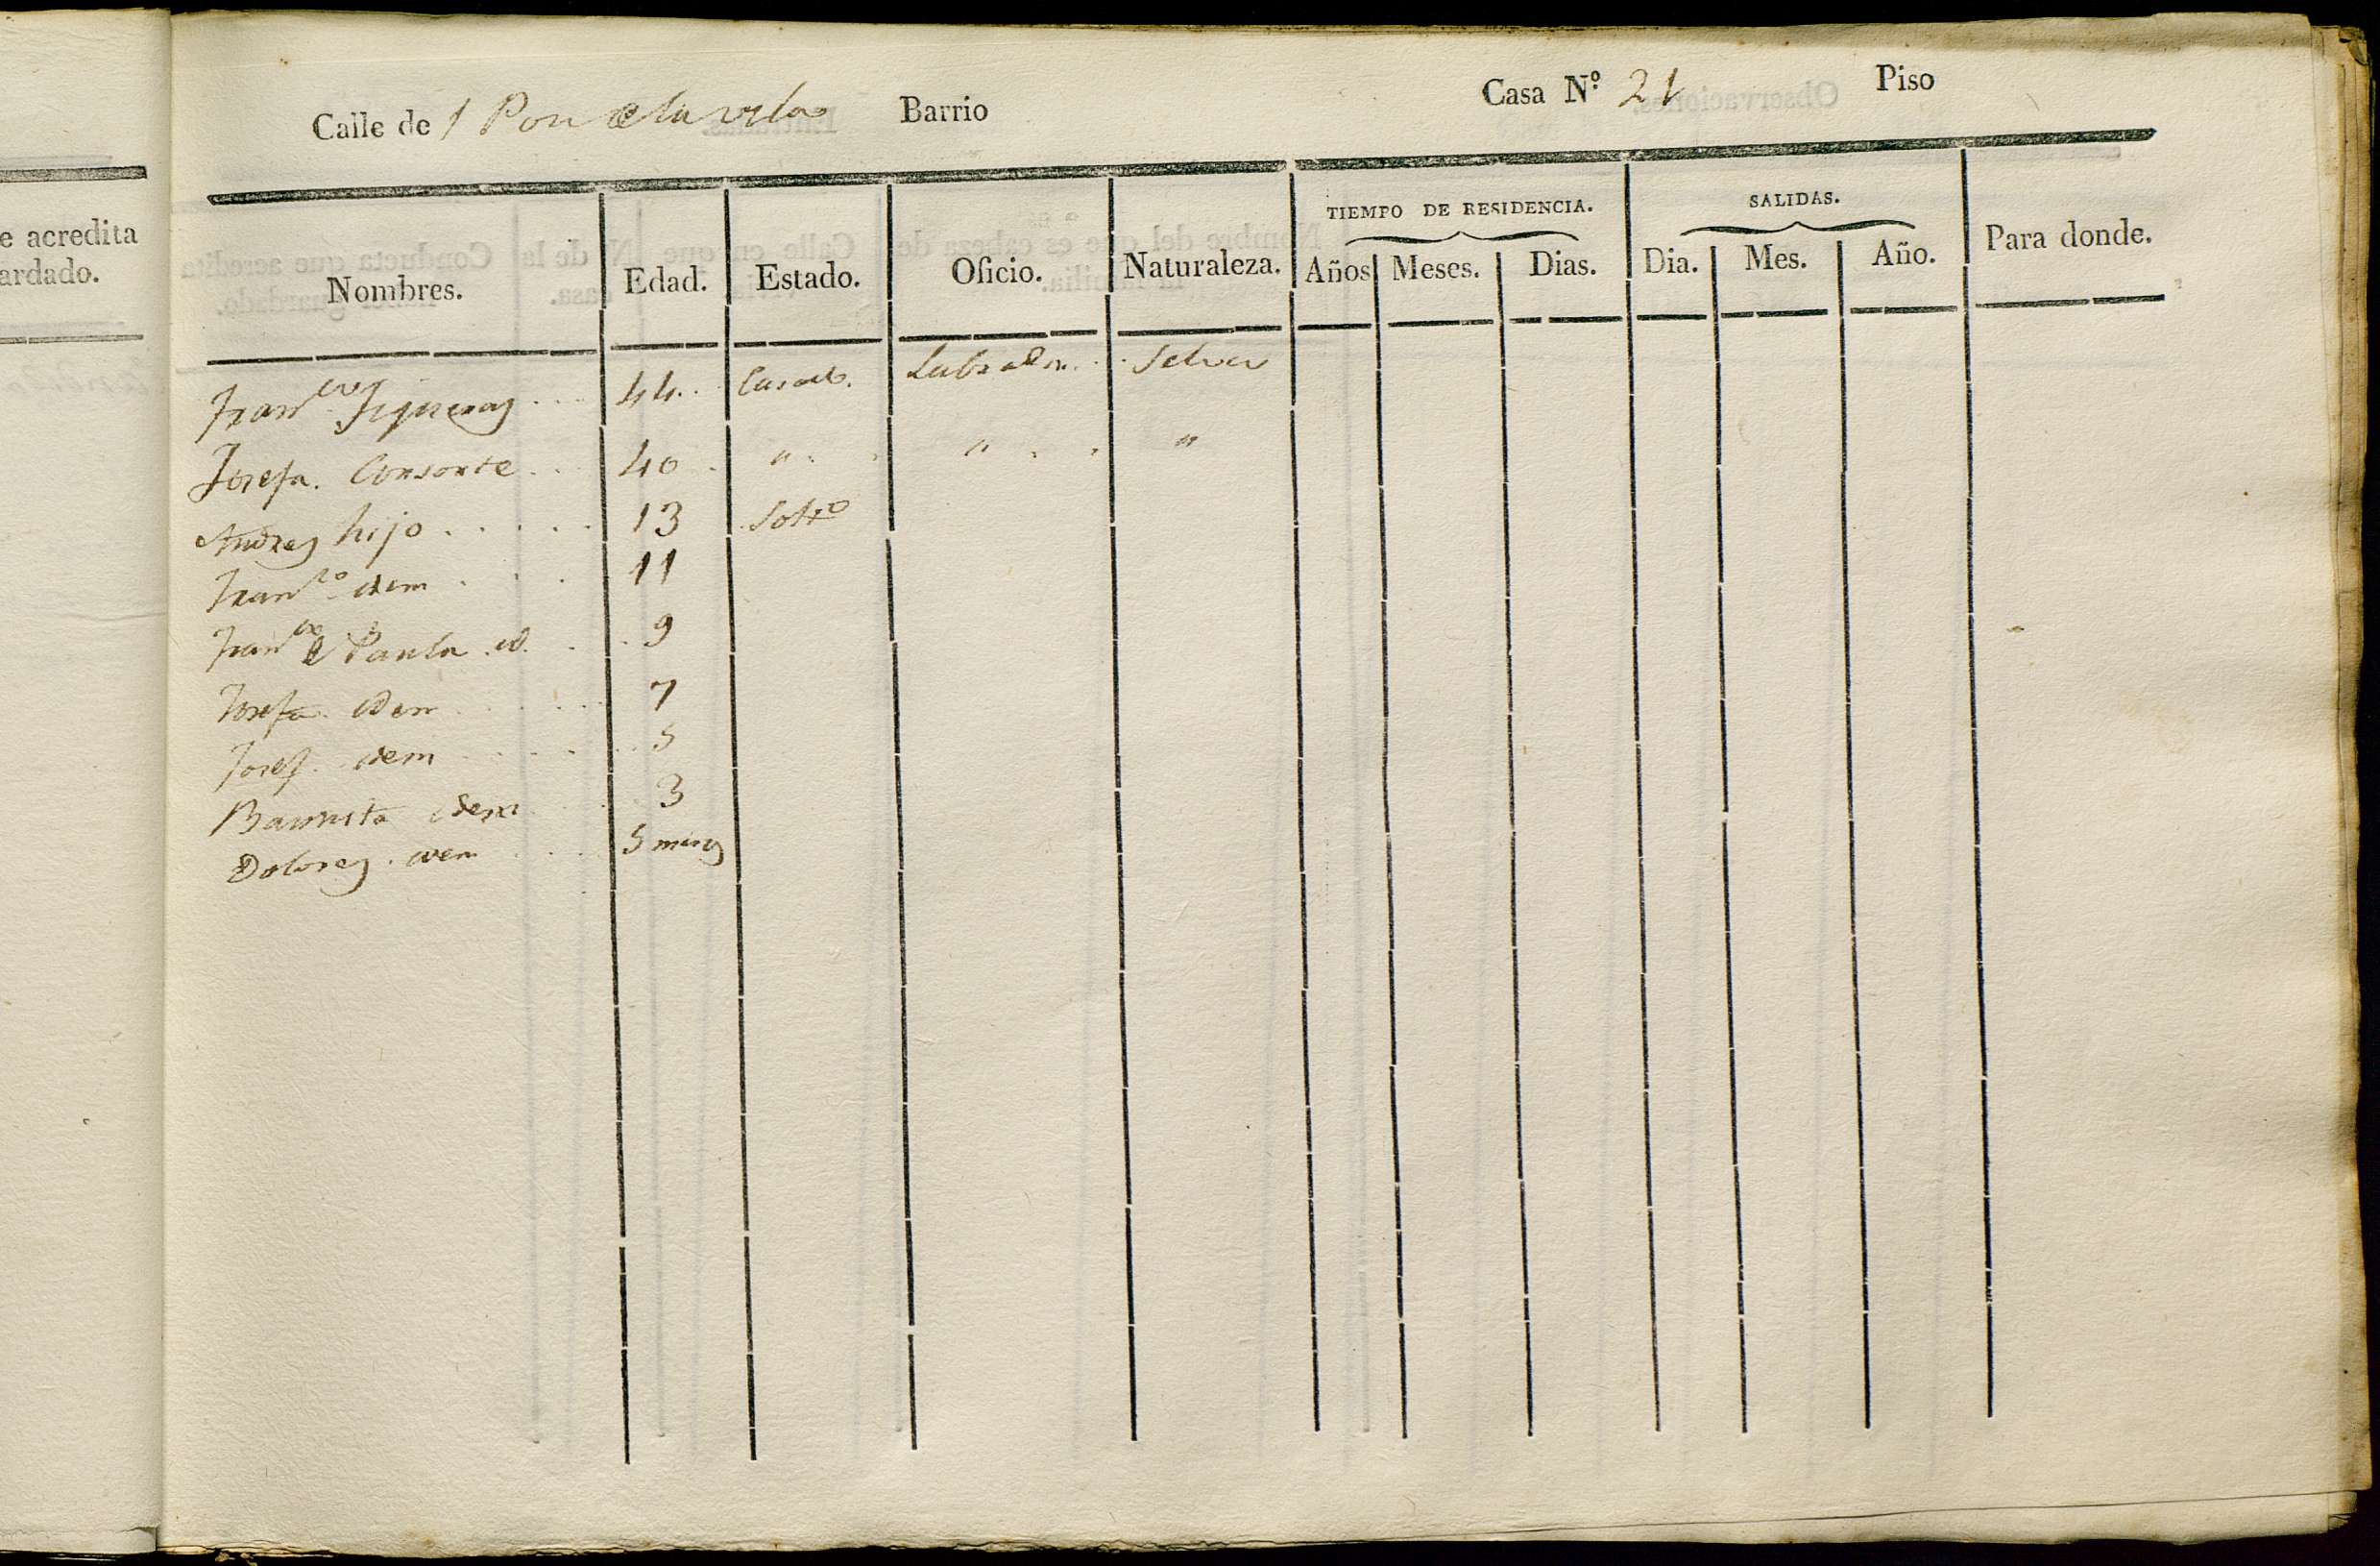 e acredita
ardado.
Calle de Barrio Casa N.º 21 Piso
TIEMPO DE RESIDENCIA. SALIDAS.
Nombres. Edad. Estado. Oficio. Naturaleza. Años Meses. Dias. Dia. Mes. Año. Para donde.
Fran.co Figueras ... 44.. Casado. Labrador... Selva
Josefa. Consorte... 40. " " "
Andres hijo..... 13 Solto
Fran.co idem... 11
Fran.co de Paula. id... 9
Josefa. idem.... 7
Josef. idem.... 5
Baunista idem... 3
Dolores. idem.... 5 meses